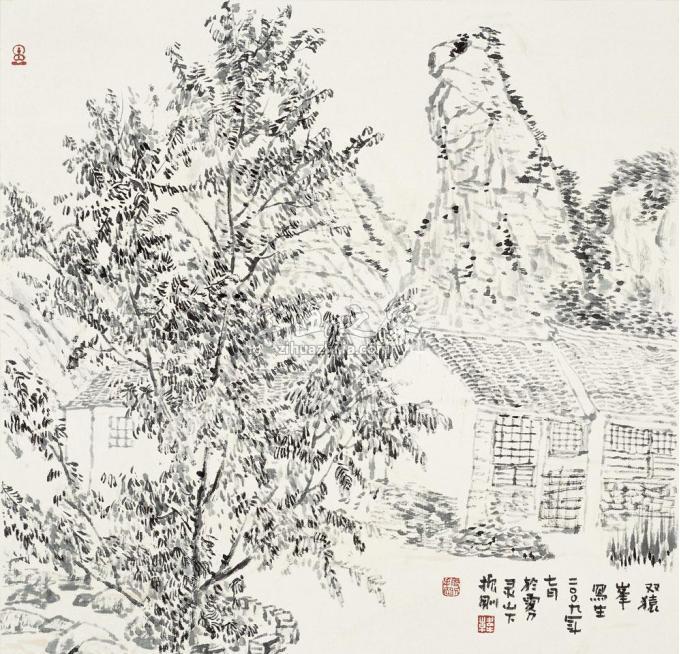 双猿
峯
写生
二〇〇九年
七月
於雾
灵山下
振刚
zihuazhijia.com